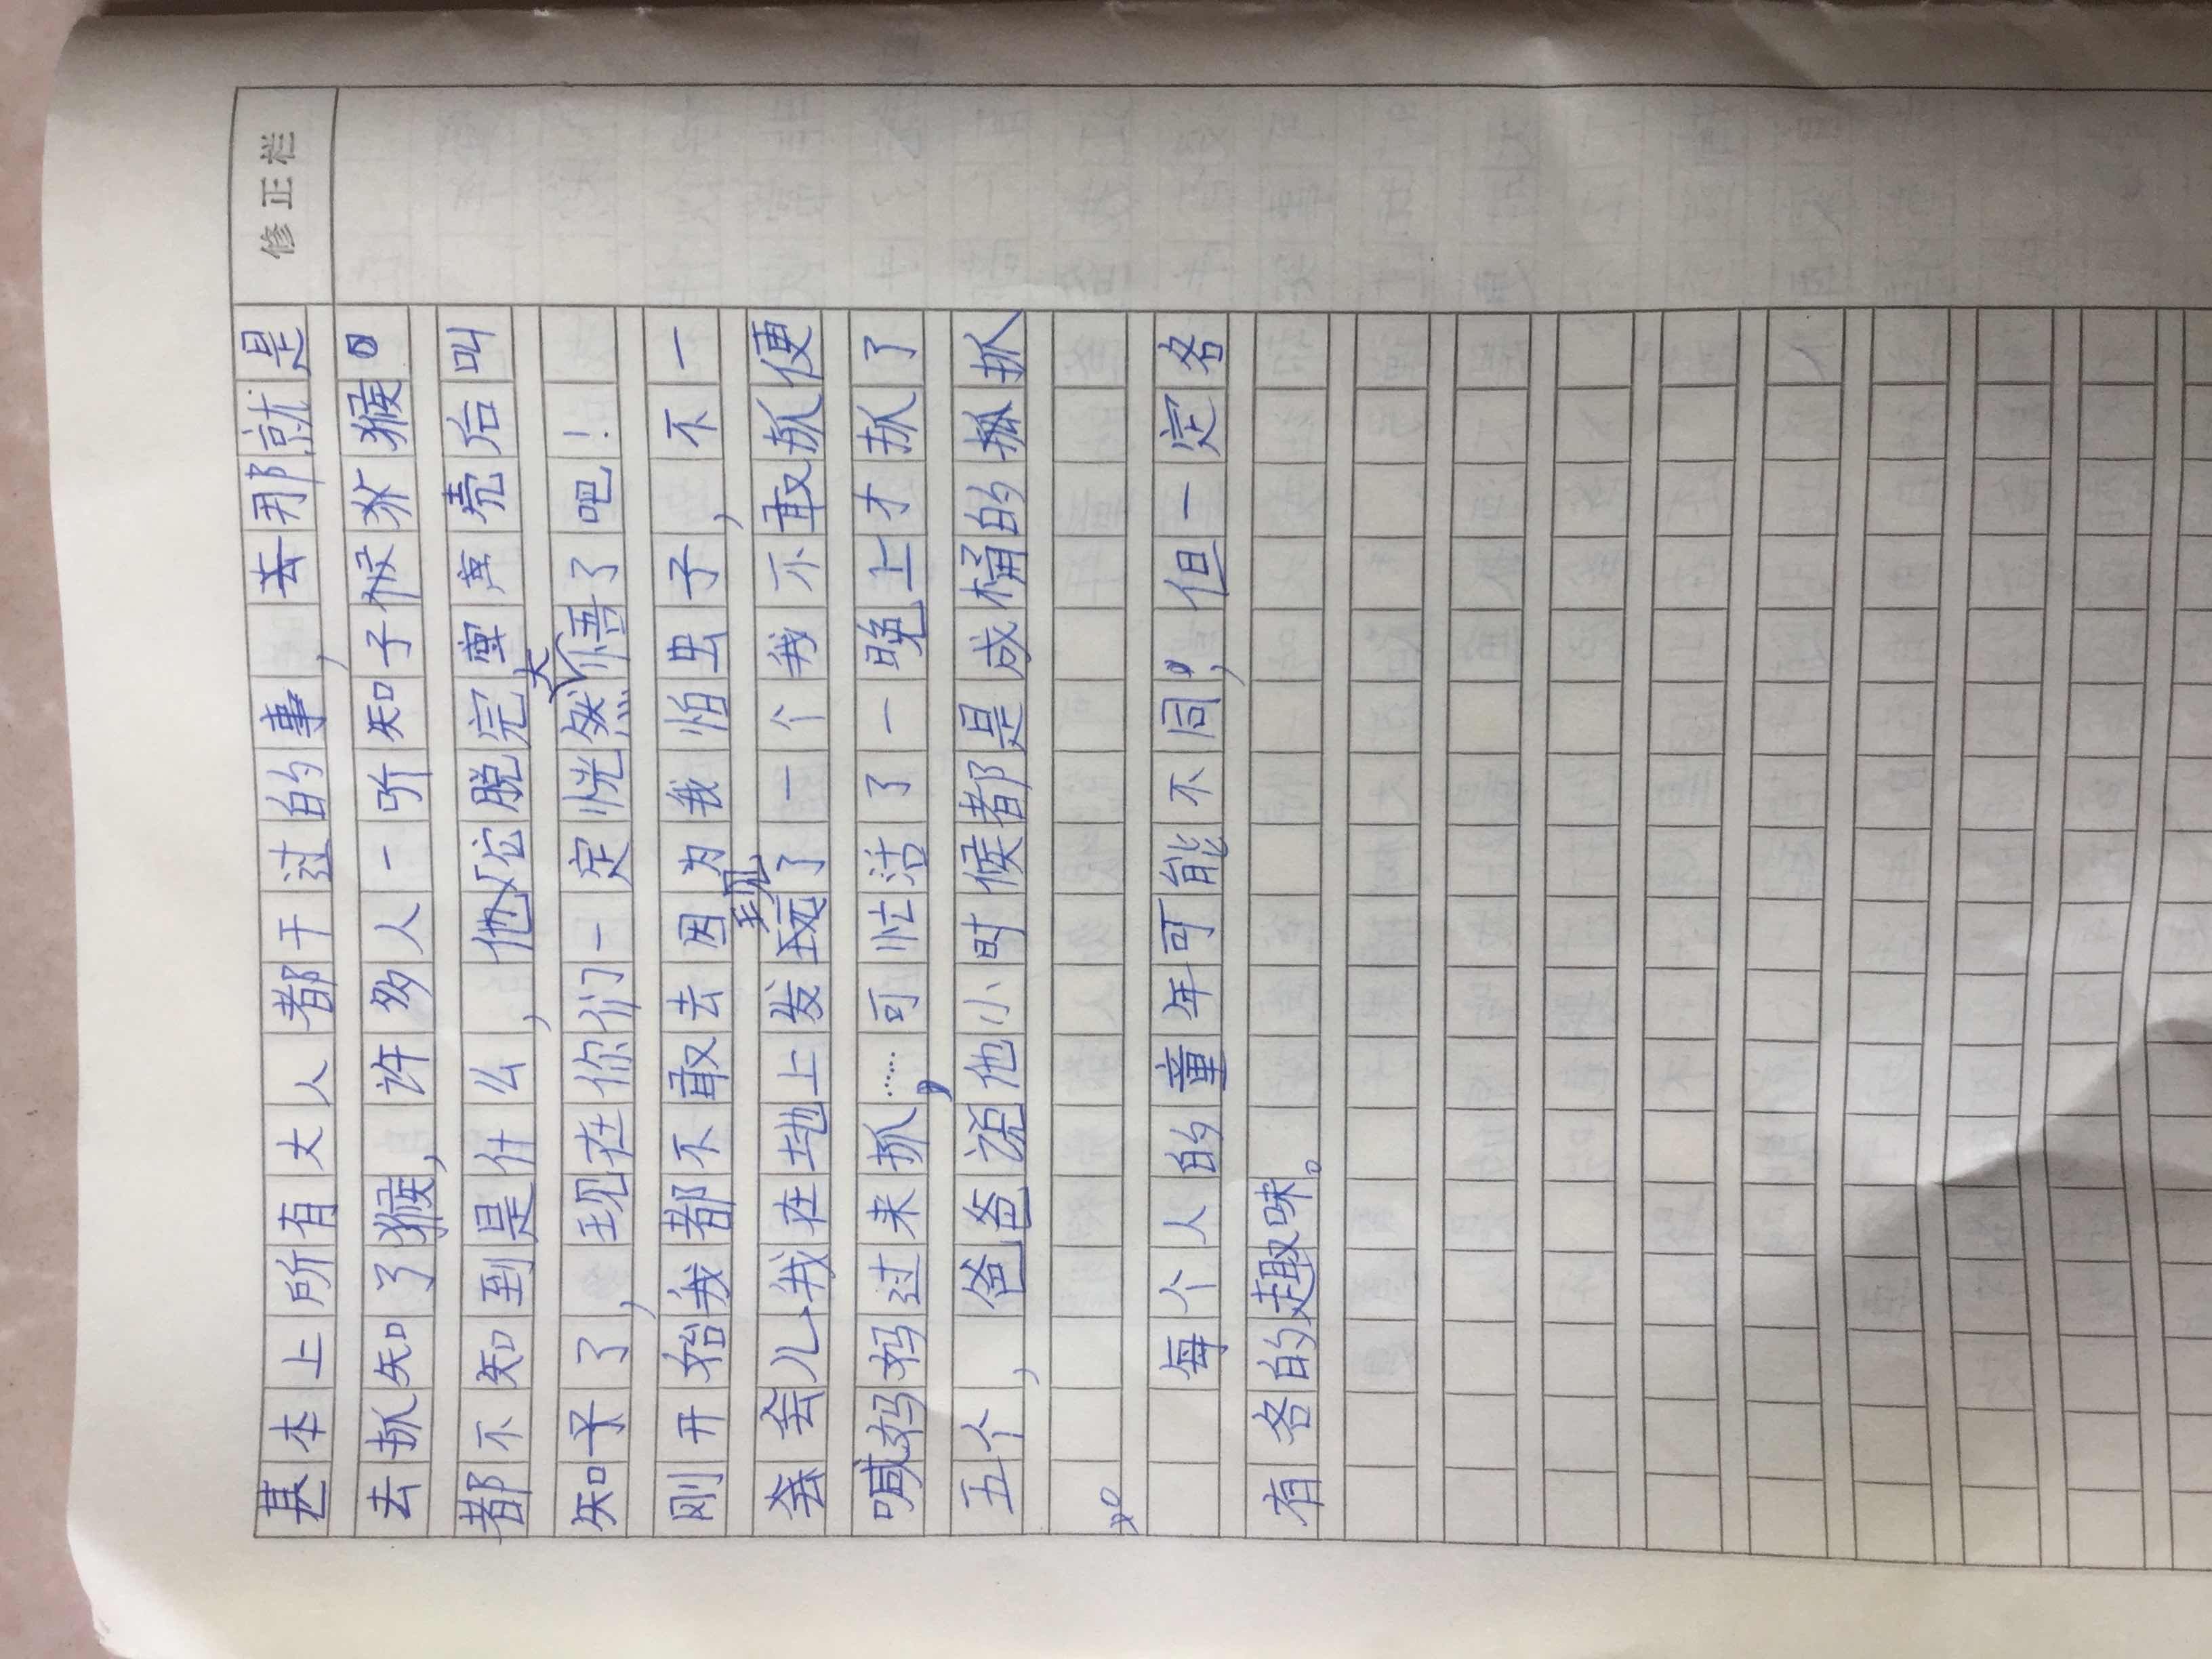 修正栏
基本上所有大人都干过的事，去那就是
去抓知了猴，许多人一听知子候犹猴
都不知到是什么，他它脱完壳声壳后叫
知子了，现在你们一定恍然大悟了吧！
刚开始我都不敢去因为我怕虫子，不一
会会儿我在地上发现了一个我不敢抓便
喊妈妈过来抓……，可忙活了一晚上才抓了
五个，爸爸说他小时候都是成桶的抓抓
每个人的童年可能不同，但一定各
有各的趣味。